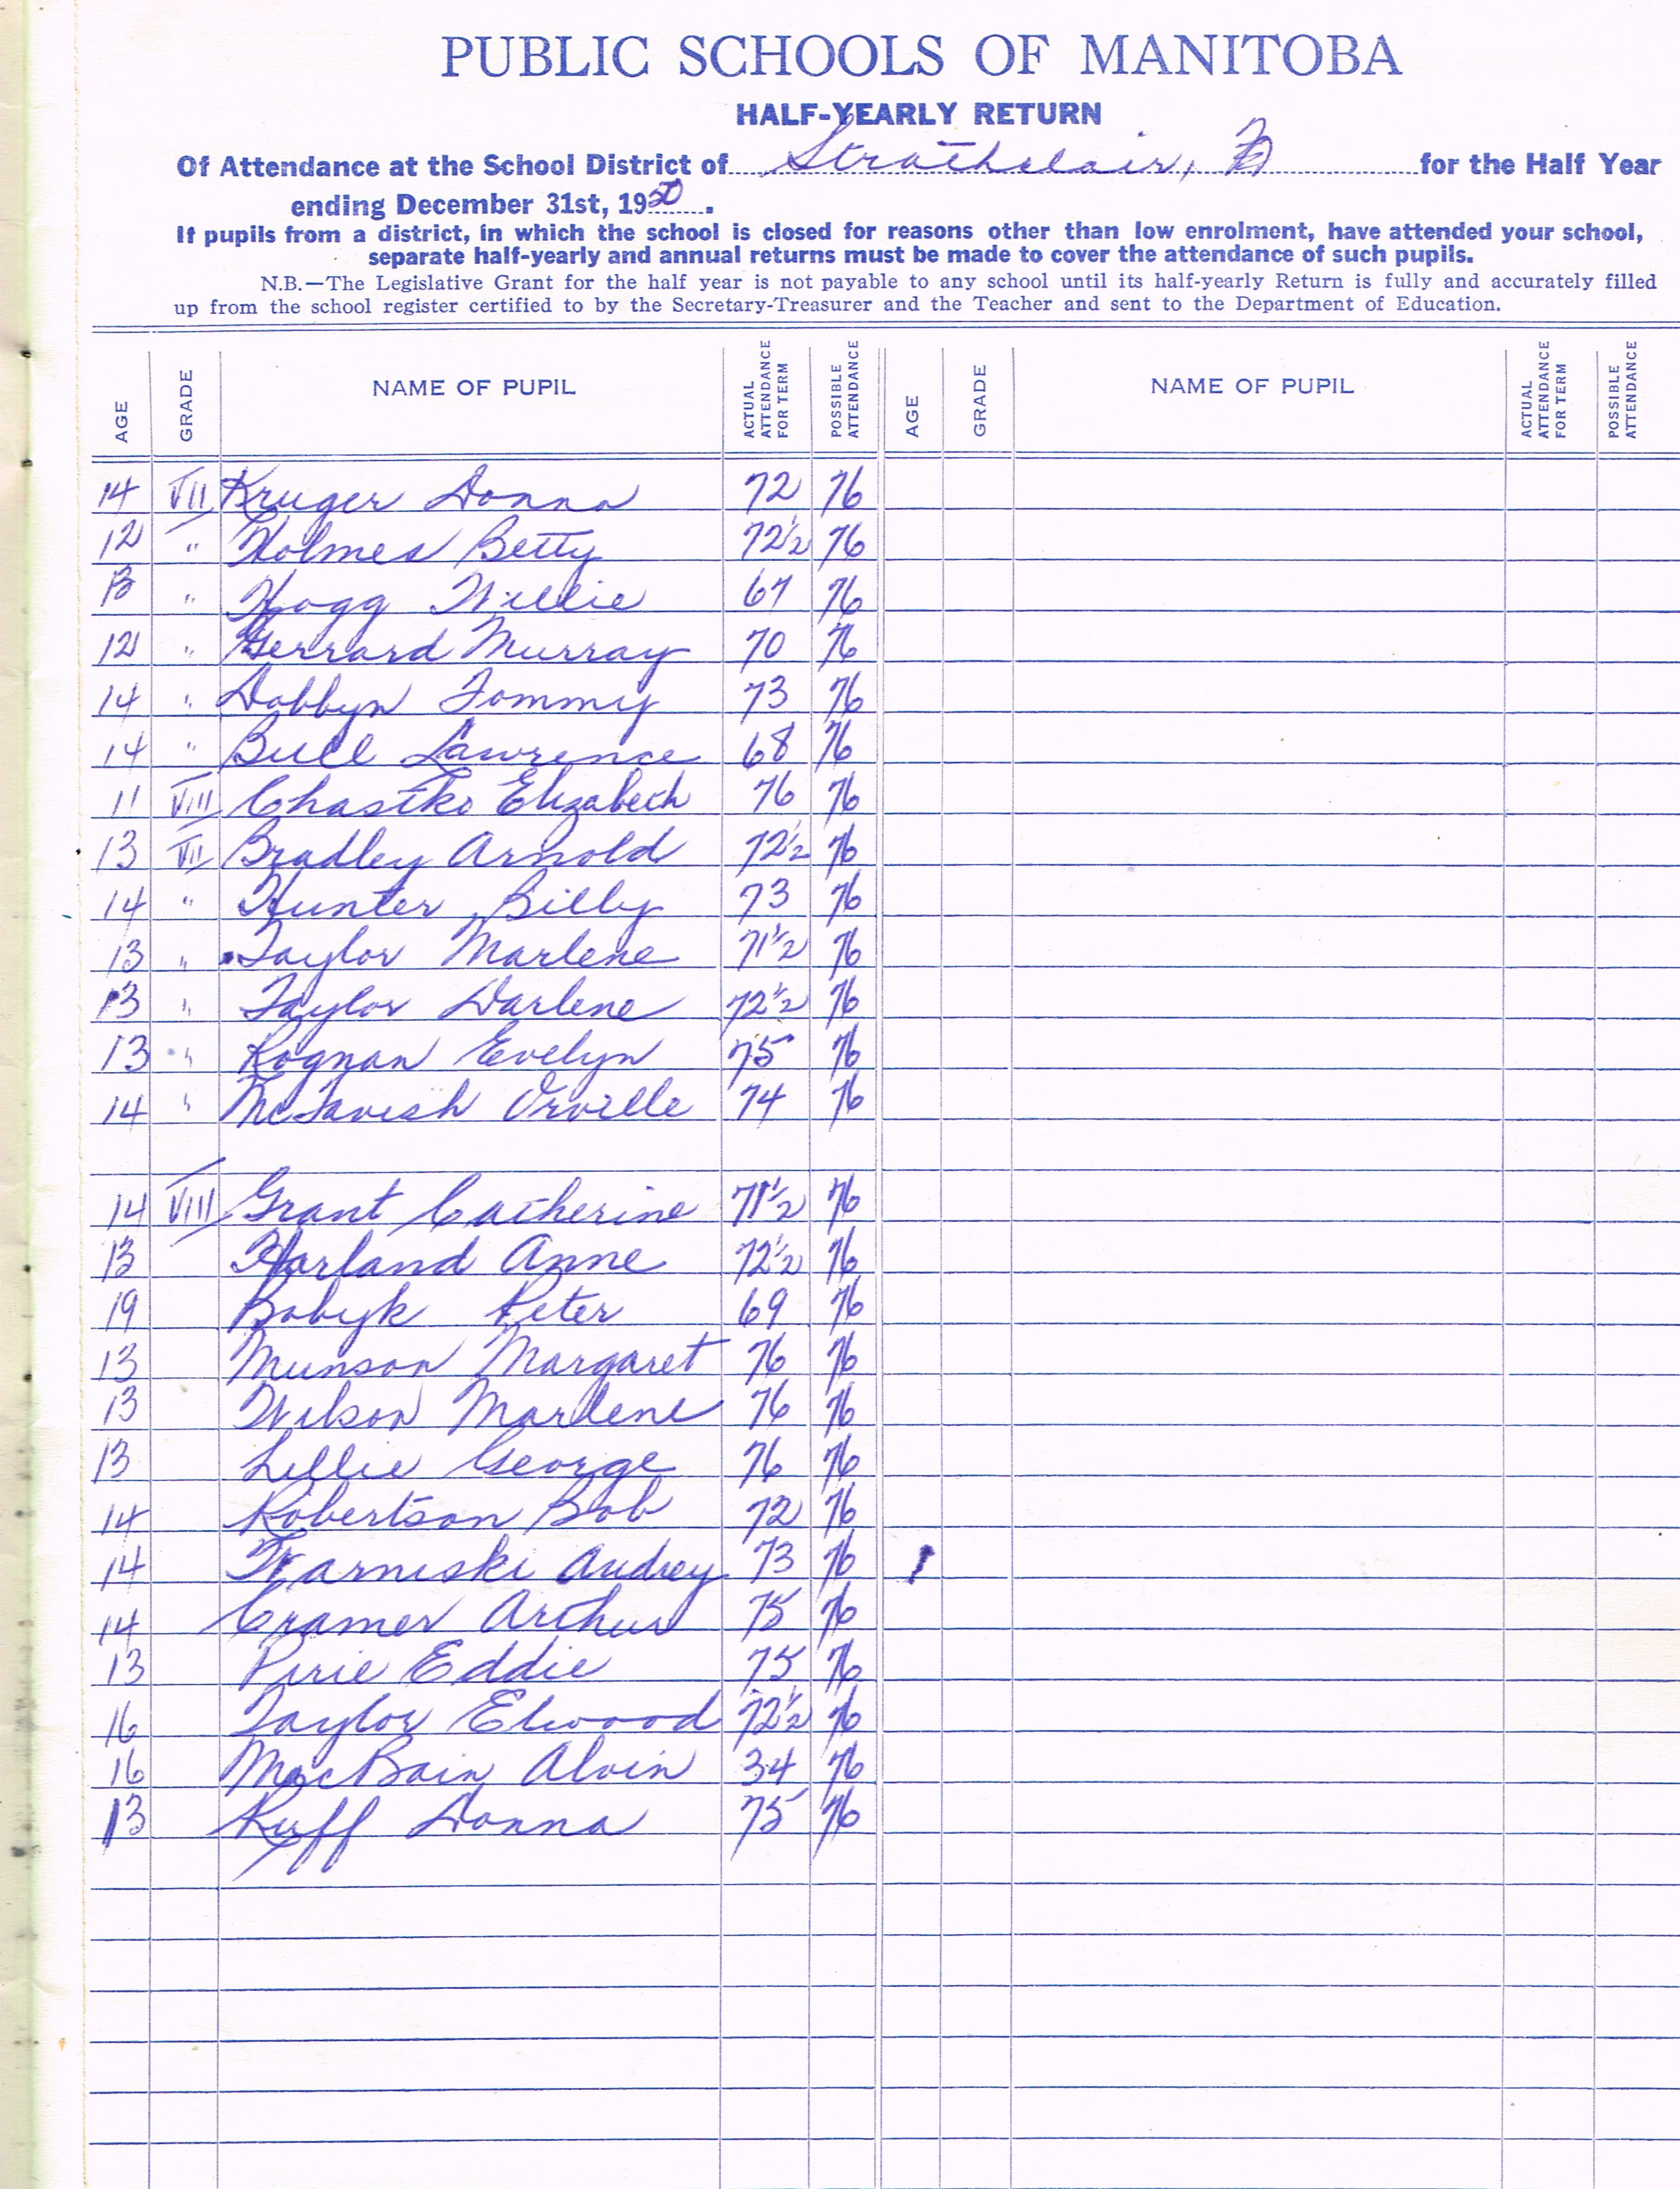 PUBLIC SCHOOLS OF MANITOBA
HALF-YEARLY RETURN
Of Attendance at the School District of Strathclair, for the Half Year
ending December 31st, 1950.
If pupils from a district, in which the school is closed for reasons other than low enrolment, have attended your school,
separate half-yearly and annual returns must be made to cover the attendance of such pupils.
N.B.—The Legislative Grant for the half year is not payable to any school until its half-yearly Return is fully and accurately filled
up from the school register certified to by the Secretary-Treasurer and the Teacher and sent to the Department of Education.
AGE GRADE NAME OF PUPIL ACTUAL ATTENDANCE FOR TERM POSSIBLE ATTENDANCE AGE GRADE NAME OF PUPIL ACTUAL ATTENDANCE FOR TERM POSSIBLE ATTENDANCE
14 VII Kruger Donna 72 76
12 " Holmes Betty 72½ 76
13 " Hogg Willie 67 76
12 " Gerrard Murray 70 76
14 " Dobbyn Tommy 73 76
14 " Bull Lawrence 68 76
11 VIII Chastko Elizabeth 76 76
13 VII Bradley Arnold 72½ 76
14 " Hunter Billy 73 76
13 " Taylor Marlene 71½ 76
13 " Taylor Darlene 72½ 76
13 " Rognan Evelyn 75 76
14 " McTavish Orville 74 76
14 VIII Grant Catherine 71½ 76
13 Harland Anne 72½ 76
19 Bobyk Peter 69 76
13 Munson Margaret 76 76
13 Wilson Marlene 76 76
13 Lillie George 76 76
14 Robertson Bob 72 76
14 Warniski Audrey 73 76
14 Cramer Arthur 75 76
13 Pirie Eddie 75 76
16 Taylor Elwood 72½ 76
16 MacBain Alvin 34 76
13 Ruff Donna 75 76